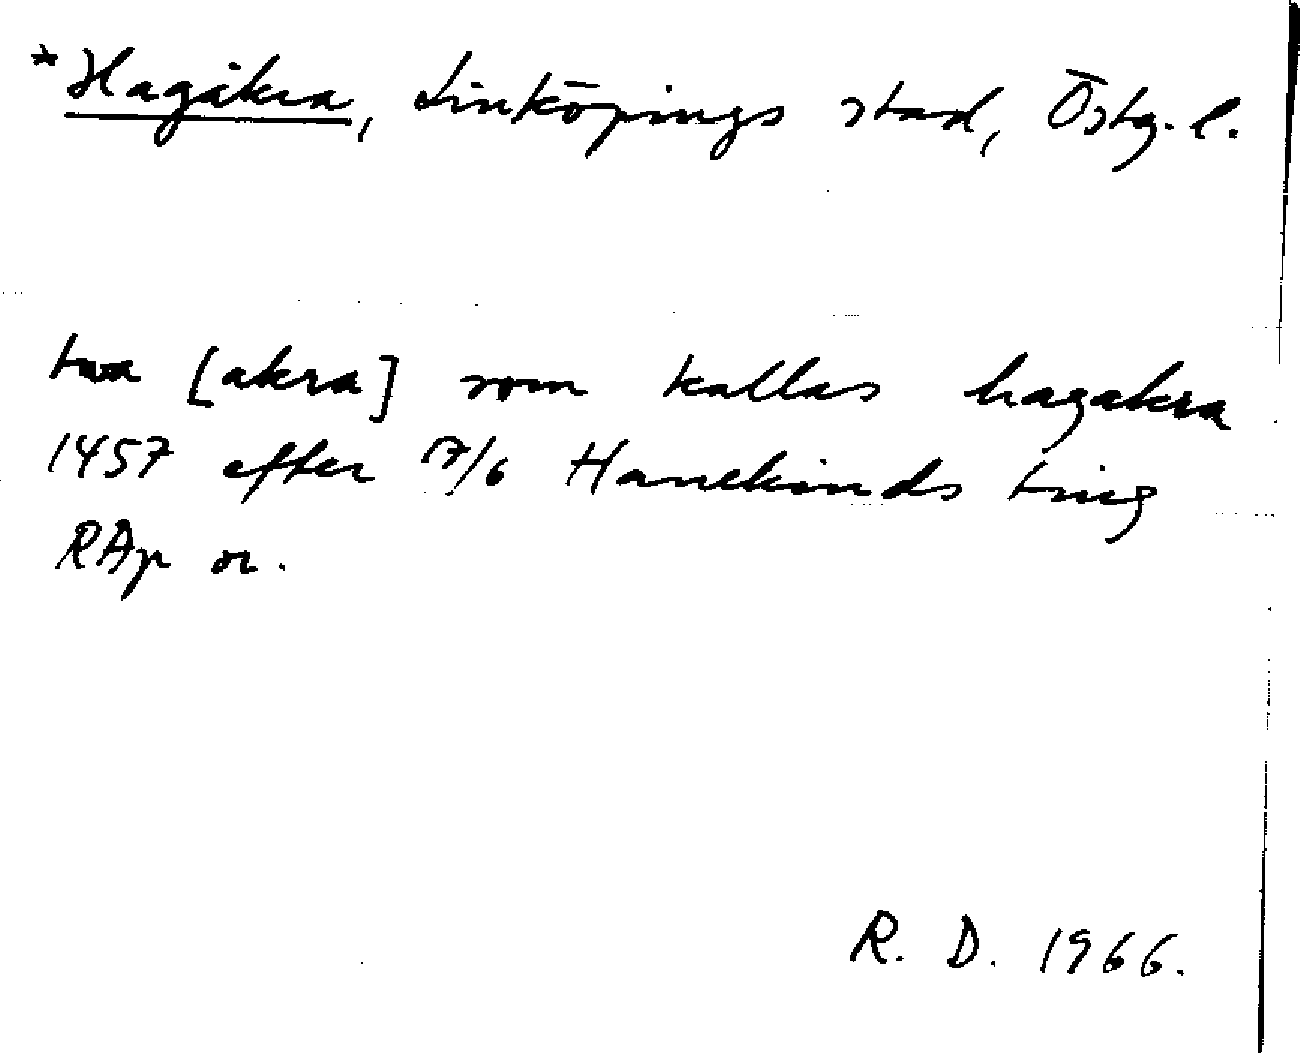 *Hagåkra, Linköpings stad, Östg. l.
twa [akra] som kallas hagakra
1457 efter 17/6 Hanekinds ting
RAp or.
R. D. 1966.